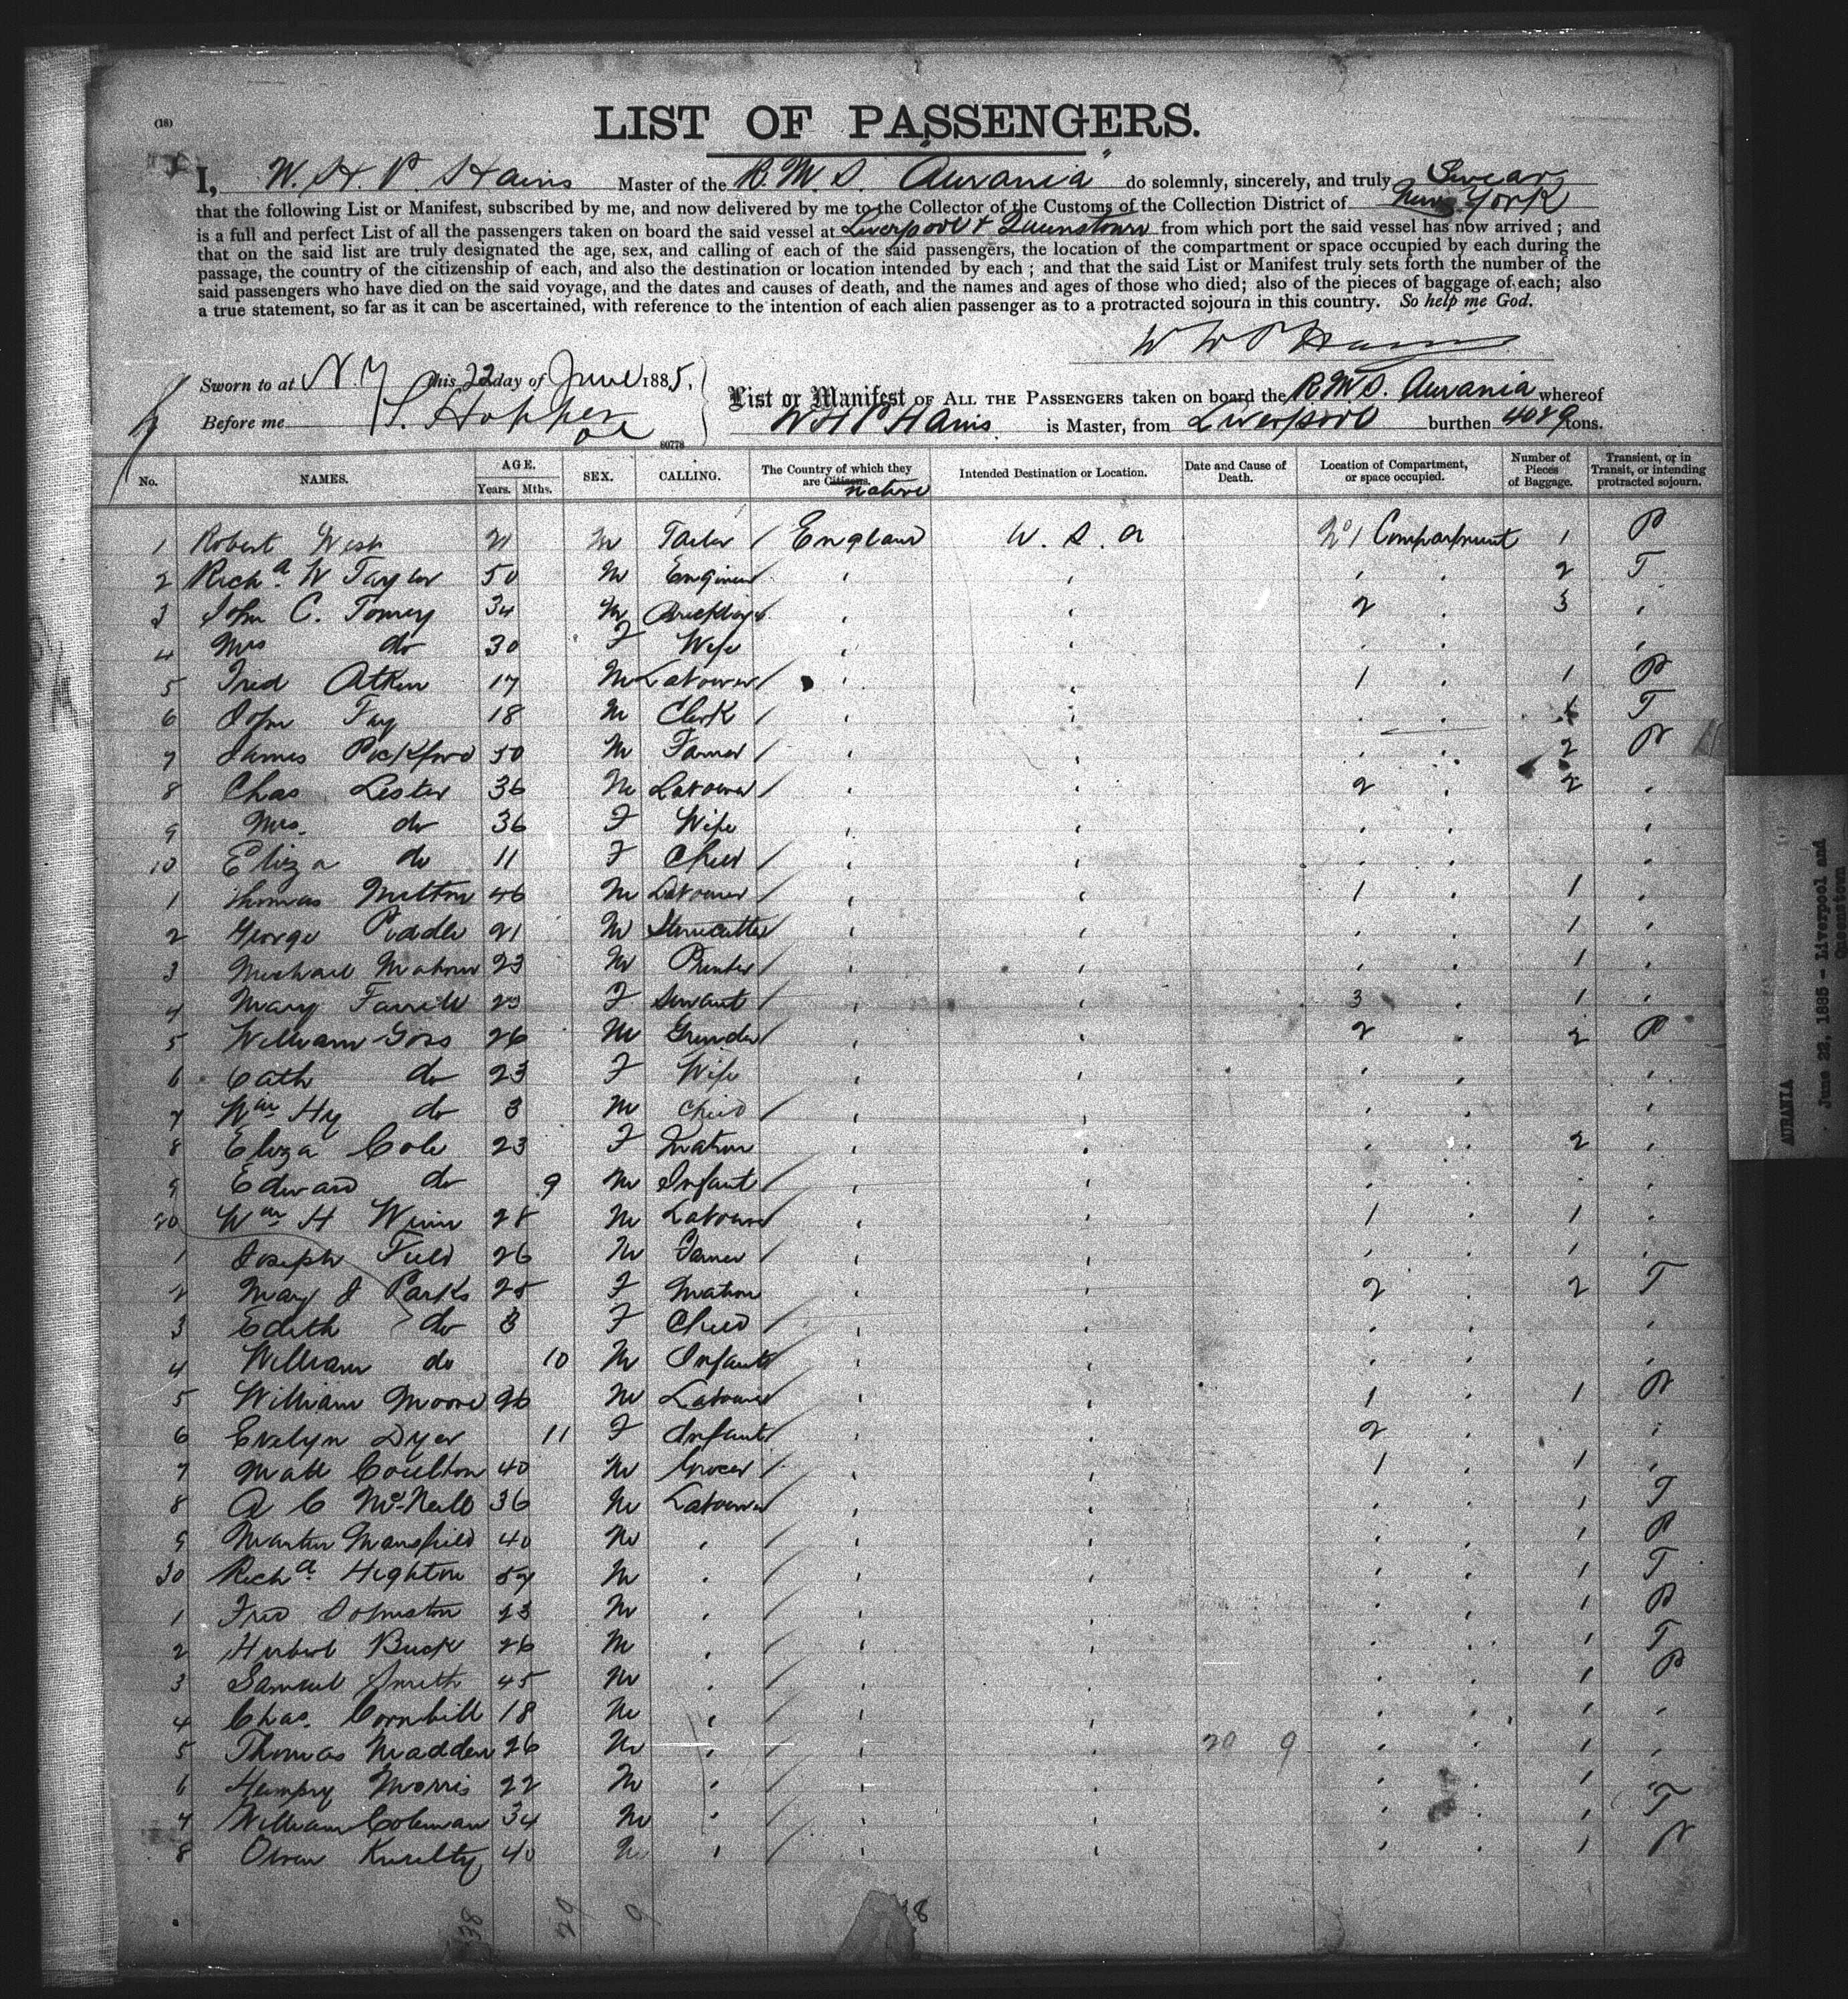 (16)
LIST OF PASSENGERS.
I, W. H. P. Hains Master of the R.M.S. "Aurania" do solemnly, sincerely, and truly Swear
that the following List or Manifest, subscribed by me, and now delivered by me to the Collector of the Customs of the Collection District of New York
is a full and perfect List of all the passengers taken on board the said vessel at Liverpool & Queenstown from which port the said vessel has now arrived ; and
that on the said list are truly designated the age, sex, and calling of each of the said passengers, the location of the compartment or space occupied by each during the
passage, the country of the citizenship of each, and also the destination or location intended by each ; and that the said List or Manifest truly sets forth the number of the
said passengers who have died on the said voyage, and the dates and causes of death, and the names and ages of those who died; also of the pieces of baggage of each; also
a true statement, so far as it can be ascertained, with reference to the intention of each alien passenger as to a protracted sojourn in this country. So help me God.
W H P Hains
Sworn to at N.Y this 22 day of June 1885,
Before me S. Hopper
60778
List or Manifest OF ALL THE PASSENGERS taken on board the R.M.S. Aurania whereof
W H P Hains is Master, from Liverpool burthen 4029 tons.
No. NAMES. AGE. Years. Mths. SEX. CALLING. The Country of which they are Citizens. native Intended Destination or Location. Date and Cause of Death. Location of Compartment, or space occupied. Number of Pieces of Baggage. Transient, or in Transit, or intending protracted sojourn.
1 Robert West 21 M Tailor / England U. S. A No 1 Compartment 1 P
2 Richd W Taylor 50 M Engineer / 2 T
3 John C. Tomey 34 M Bricklayer 2 3
4 Mrs do 30 F Wife
5 Fred Atkin 17 M Labourer / 1 1 P
6 John Fay 18 M Clerk / 1 T
7 James Pickford 50 M Farmer / 2 P
8 Chas Lester 36 M Labourer / 2 2
9 Mrs. do 36 F Wife
10 Eliza do 11 F Child /
1 Thomas Melton 46 M Labourer / 1 1
2 George Piddle 21 M Stonecutter / 1
3 Michael Mahon 23 M Printer / 1
4 Mary Farrell 23 F Servant / 3 1
5 William Goss 26 M Grinder / 2 2 P
6 Cath do 23 F Wife
7 Wm Hy do 3 M Child /
8 Eliza Cole 23 F Matron 2
9 Edward do 9 M Infant /
20 Wm H Winn 28 M Labourer 1 1
1 Joseph Field 26 M Farmer / 1
2 Mary J Parks 25 F Matron 2 2 T
3 Edith do 3 F Child /
4 William do 10 M Infant /
5 William Moore 26 M Labourer / 1 1 P
6 Evelyn Dyer 11 F Infant / 2
7 Matt Coulton 40 M Grocer / 1 1
8 A C McNeill 36 M Labourer 1 T
9 Martin Mansfield 40 M / 1 P
30 Richd Highton 57 M / 1 T
1 Fred Johnston 23 M / 1 P
2 Herbert Buck 26 M / 1 T
3 Samuel Smith 45 M / 1 P
4 Chas. Cornhill 18 M / 1
5 Thomas Madden 26 M / 20 9 1
6 Humpry Morris 22 M / 1
7 William Coleman 34 M / 1 T
8 Owen 40 M / 1 P
38 29 9
AURANIA
June 22, 1885 - Liverpool and
Queenstown